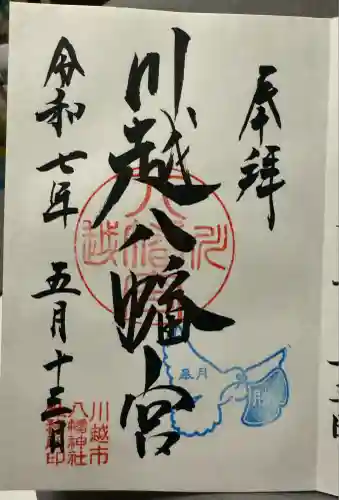 奉拝
川越八幡宮
令和七年五月十三日
八幡
川越
皐月
勝
川越市
八幡神社